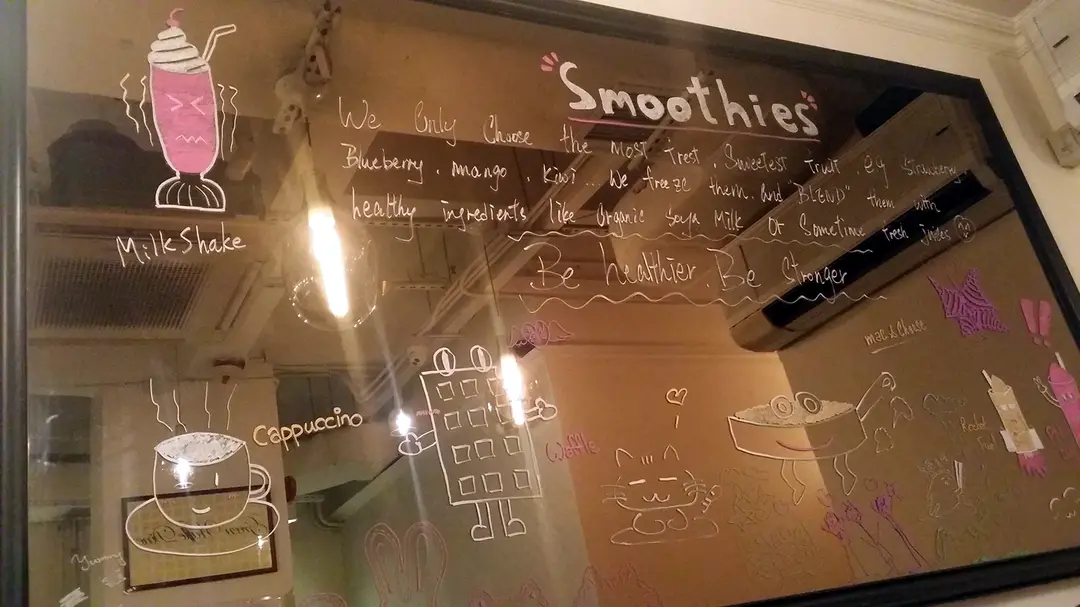 Smoothies
We Only Choose the most fresh, Sweetest Fruit, e.g Strawberry,
Blueberry, mango, kiwi... We freeze them, and "BLEND" them with
healthy ingredients like Organic Soya Milk Or Sometime fresh juices
Be healthier. Be Stronger
MilkShake
mac & Cheese
Cappuccino
Waffle
Yummy